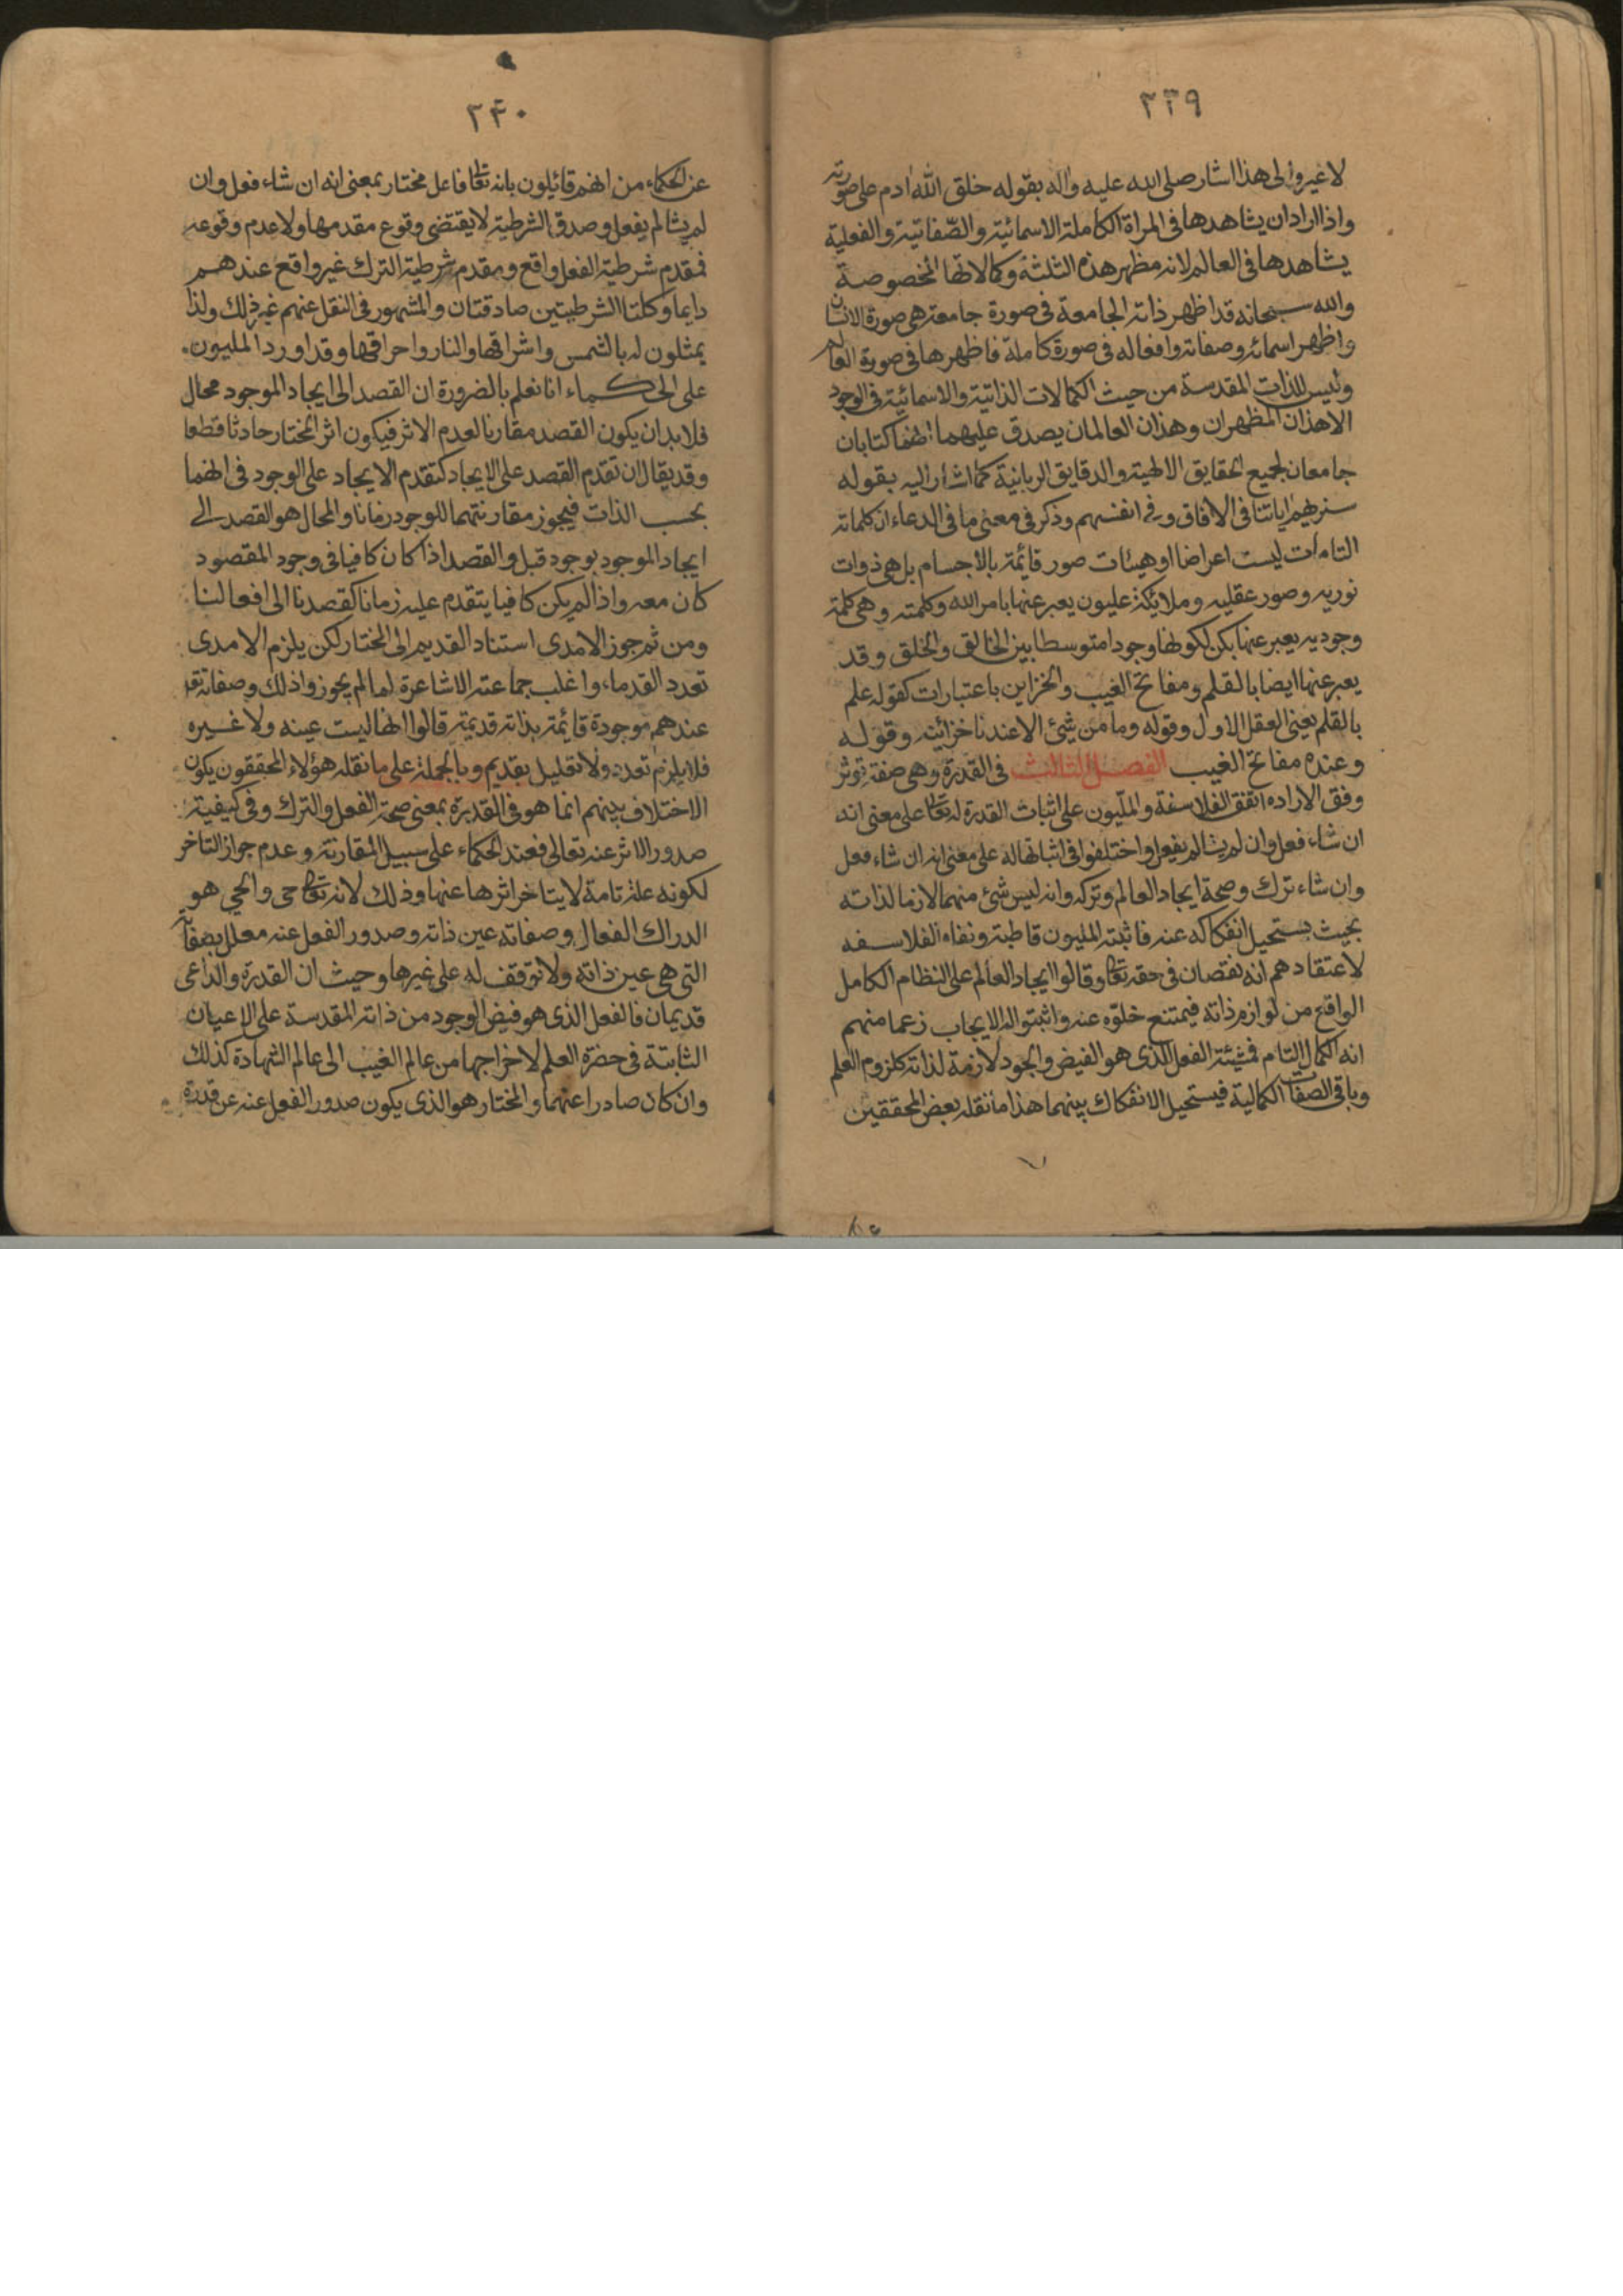 ٣٣٩
لا غير والى هذا اشار صلى الله عليه واله بقوله خلق الله ادم على صورته
واذا اراد ان يشاهدها فى المراة الكاملة الاسمائية والصّفاتية والفعلية
يشاهدها فى العالم لانه مظهر هذه الثلثة وكمالاتها المخصوصة
والله سبحانه قد اظهر ذاته الجامعة فى صورة جامعة هى صورة الانسان
واظهر اسمائه وصفاته وافعاله فى صورة كاملة فاظهرها فى صورة العالم
وليس للذات المقدسة من حيث الكمالات الذاتية والاسمائية فى الوجود
الا هذان المظهران وهذان العالمان يصدق عليهما انهما كتابان
جامعان لجميع الحقايق الالهية والدقايق الربانية كما اشار اليه بقوله
سنريهم اياتنا فى الافاق وفى انفسهم وذكر فى معنى ما فى الدعاء ان كلماته
التامات ليست اعراضا او هيئات صور قائمة بالاجسام بل هى ذوات
نوريه وصور عقليه وملايكة عليون يعبر عنها بامر الله وكلمته وهى كلمة
وجوديه يعبر عنها بكن لكونها وجودا متوسطا بين الخالق والخلق وقد
يعبر عنها ايضا بالقلم ومفاتح الغيب والخزاين باعتبارات كقوله علم
بالقلم يعنى العقل الاول وقوله وما من شئ الا عندنا خزائنه وقوله
وعنده مفاتح الغيب الفصل الثالث فى القدرة وهى صفة توثر
وفق الاراده اتفق الفلاسفة والملّيون على اثبات القدرة له تعالى على معنى انه
ان شاء فعل وان لم يشا لم يفعل واختلفوا فى اثباتها له على معنى انه ان شاء فعل
وان شاء ترك وصحة ايجاد العالم وتركه وانه ليس شئ منهما لازما لذاته
بحيث يستحيل انفكاكه عنه فاثبته المليون قاطبة ونفاه الفلاسفه
لاعتقادهم انه نقصان فى حقه تعالى وقالوا ايجاد العالم على النظام الكامل
الواقع من لوازم ذاته فيمتنع خلوّه عنه واثبتوا له الايجاب زعما منهم
انه الكمال التام فمشيئة الفعل الذى هو الفيض والجود لازمة لذاته كلزوم العلم
وباقى الصفات الكمالية فيستحيل الانفكاك بينهما هذا ما نقله بعض المحققين
٣٤٠
عن الحكماء من انهم قائلون بانه تعالى فاعل مختار بمعنى انه ان شاء فعل وان
لم يشا لم يفعل وصدق الشرطية لا يقتضى وقوع مقدمها ولا عدم وقوعه
فمقدم شرطية الفعل واقع ومقدم شرطية الترك غير واقع عندهم
دايما وكلتا الشرطيتين صادقتان والمشهور فى النقل عنهم غير ذلك ولذا
يمثلون له بالشمس واشراقها والنار واحراقها وقد اورد المليون
على الحكماء انا نعلم بالضرورة ان القصد الى ايجاد الموجود محال
فلابد ان يكون القصد مقارنا لعدم الاثر فيكون اثر المختار حادثا قطعا
وقد يقال ان تقدم القصد على الايجاد كتقدم الايجاد على الوجود فى انهما
بحسب الذات فيجوز مقارنتهما للوجود زمانا والمحال هو القصد الى
ايجاد الموجود بوجود قبل والقصد اذا كان كافيا فى وجود المقصود
كان معه واذا لم يكن كافيا يتقدم عليه زمانا كقصدنا الى افعالنا
ومن ثم جوز الامدى استناد القديم الى المختار لكن يلزم الامدى
تعدد القدماء واغلب جماعته الاشاعرة لما لم يجوزوا ذلك وصفاته تعالى
عندهم موجودة قائمة بذاته قديمة قالوا انها ليست عينه ولا غيره
فلا يلزم تعدد ولا تعليل بقديم وبالجملة على ما نقله هؤلاء المحققون يكون
الاختلاف بينهم انما هو فى القدرة بمعنى صحة الفعل والترك وفى كيفية
صدور الاثر عنه تعالى فعند الحكماء على سبيل المقارنة وعدم جواز التاخر
لكونه علة تامة لا يتاخر اثرها عنها وذلك لانه تعالى حى والحى هو
الدراك الفعال وصفاته عين ذاته وصدور الفعل عنه معلل بصفاته
التى هى عين ذاته ولا توقف له على غيرها وحيث ان القدرة والداعى
قديمان فالفعل الذى هو فيض الوجود من ذاته المقدسة على الاعيان
الثابتة فى حضرة العلم لاخراجها من عالم الغيب الى عالم الشهادة كذلك
وان كان صادرا عنهما والمختار هو الذى يكون صدور الفعل عنه عن قدرة